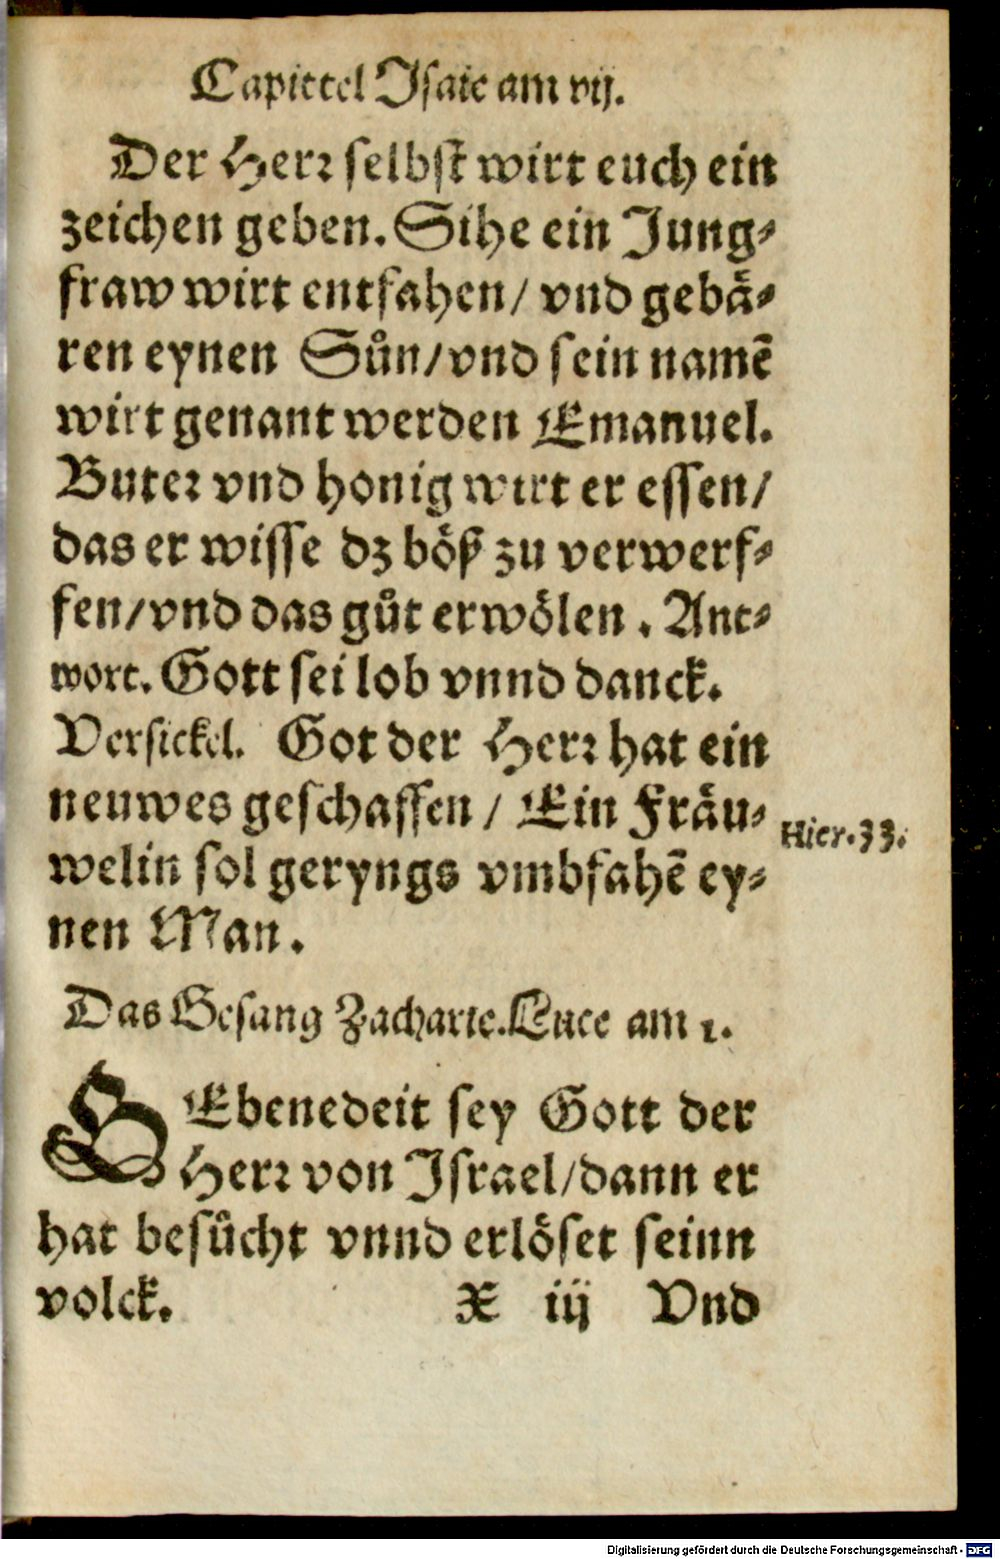 Capittel Jsaie am vij.
Der Herꝛ selbst wirt euch ein
zeichen geben. Sihe ein Jung⸗
fraw wirt entfahen/ vnd gebaͤ⸗
ren eynen Suͤn/vnd sein namē
wirt genant werden Emanuel.
Buteꝛ vnd honig wirt er essen/
das er wisse dz boͤß zu verwerf⸗
fen/vnd das guͦt erwoͤlen. Ant⸗
wort. Gott sei lob vnnd danck.
Versickel. Got der Herꝛ hat ein
neuwes geschaffen / Ein Fraͤu⸗
welin sol geryngs vmbfahē ey⸗
nen Man.
Hier.33.
Das Gesang Zacharie.Luce am 1.
GEbenedeit sey Gott der
Herꝛ von Jsrael/dann er
hat besuͦcht vnnd erloͤset seinn
volck. X iij Vnd
Digitalisierung gefördert durch die Deutsche Forschungsgemeinschaft - DFG